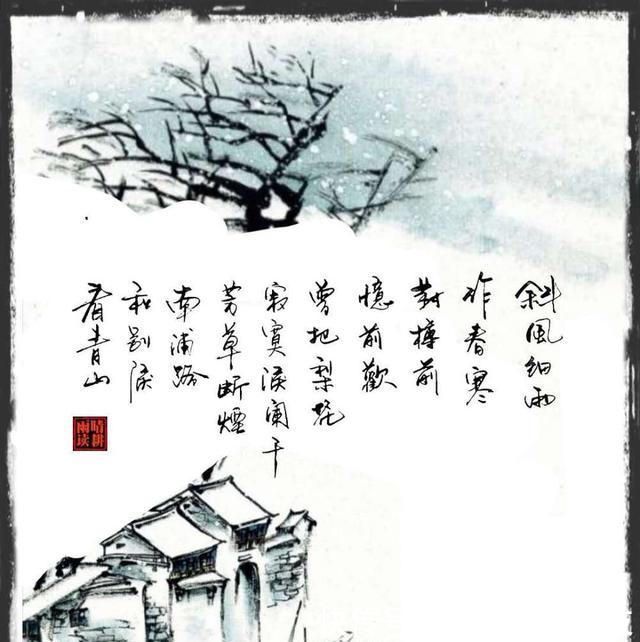 斜風細雨
作春寒
對樽前
憶前歡
曾把梨花
寂寞淚闌干
芳草斷煙
南浦路
和別淚
看青山
晴耕
雨读